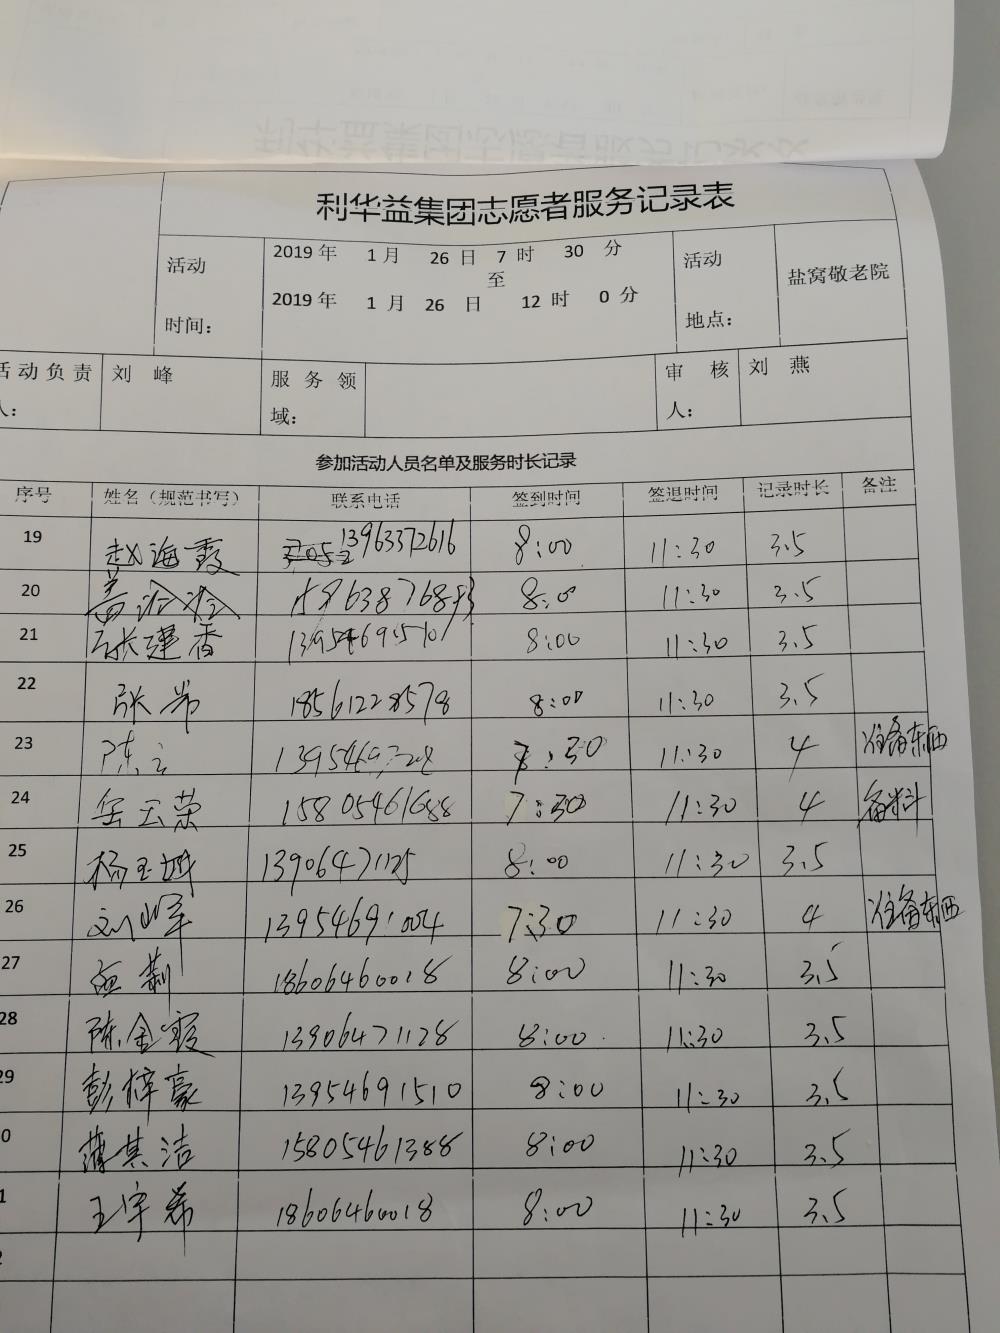 利华益集团志愿者服务记录表
活动时间： 2019年 1月 26日 7时 30分 至 2019年 1月 26日 12时 0分 活动地点： 盐窝敬老院
活动负责人： 刘峰 服务领域： 审核人： 刘燕
参加活动人员名单及服务时长记录
序号 姓名（规范书写） 联系电话 签到时间 签退时间 记录时长 备注
19 赵海霞 13963372616 8:00 11:30 3.5
20 8:00 11:30 3.5
21 张建香 8:00 11:30 3.5
22 张 18561228578 8:00 11:30 3.5
23 陈 7:30 11:30 4 准备东西
24 岳玉荣 15805461688 7:30 11:30 4 备料
25 杨玉城 13906471125 8:00 11:30 3.5
26 刘峰 13954691004 7:30 11:30 4 准备东西
27 18606460018 8:00 11:30 3.5
28 陈金霞 13906471128 8:00 11:30 3.5
29 彭梓豪 13954691510 8:00 11:30 3.5
0 薄其洁 15805461388 8:00 11:30 3.5
1 王宇希 18606460018 8:00 11:30 3.5
2